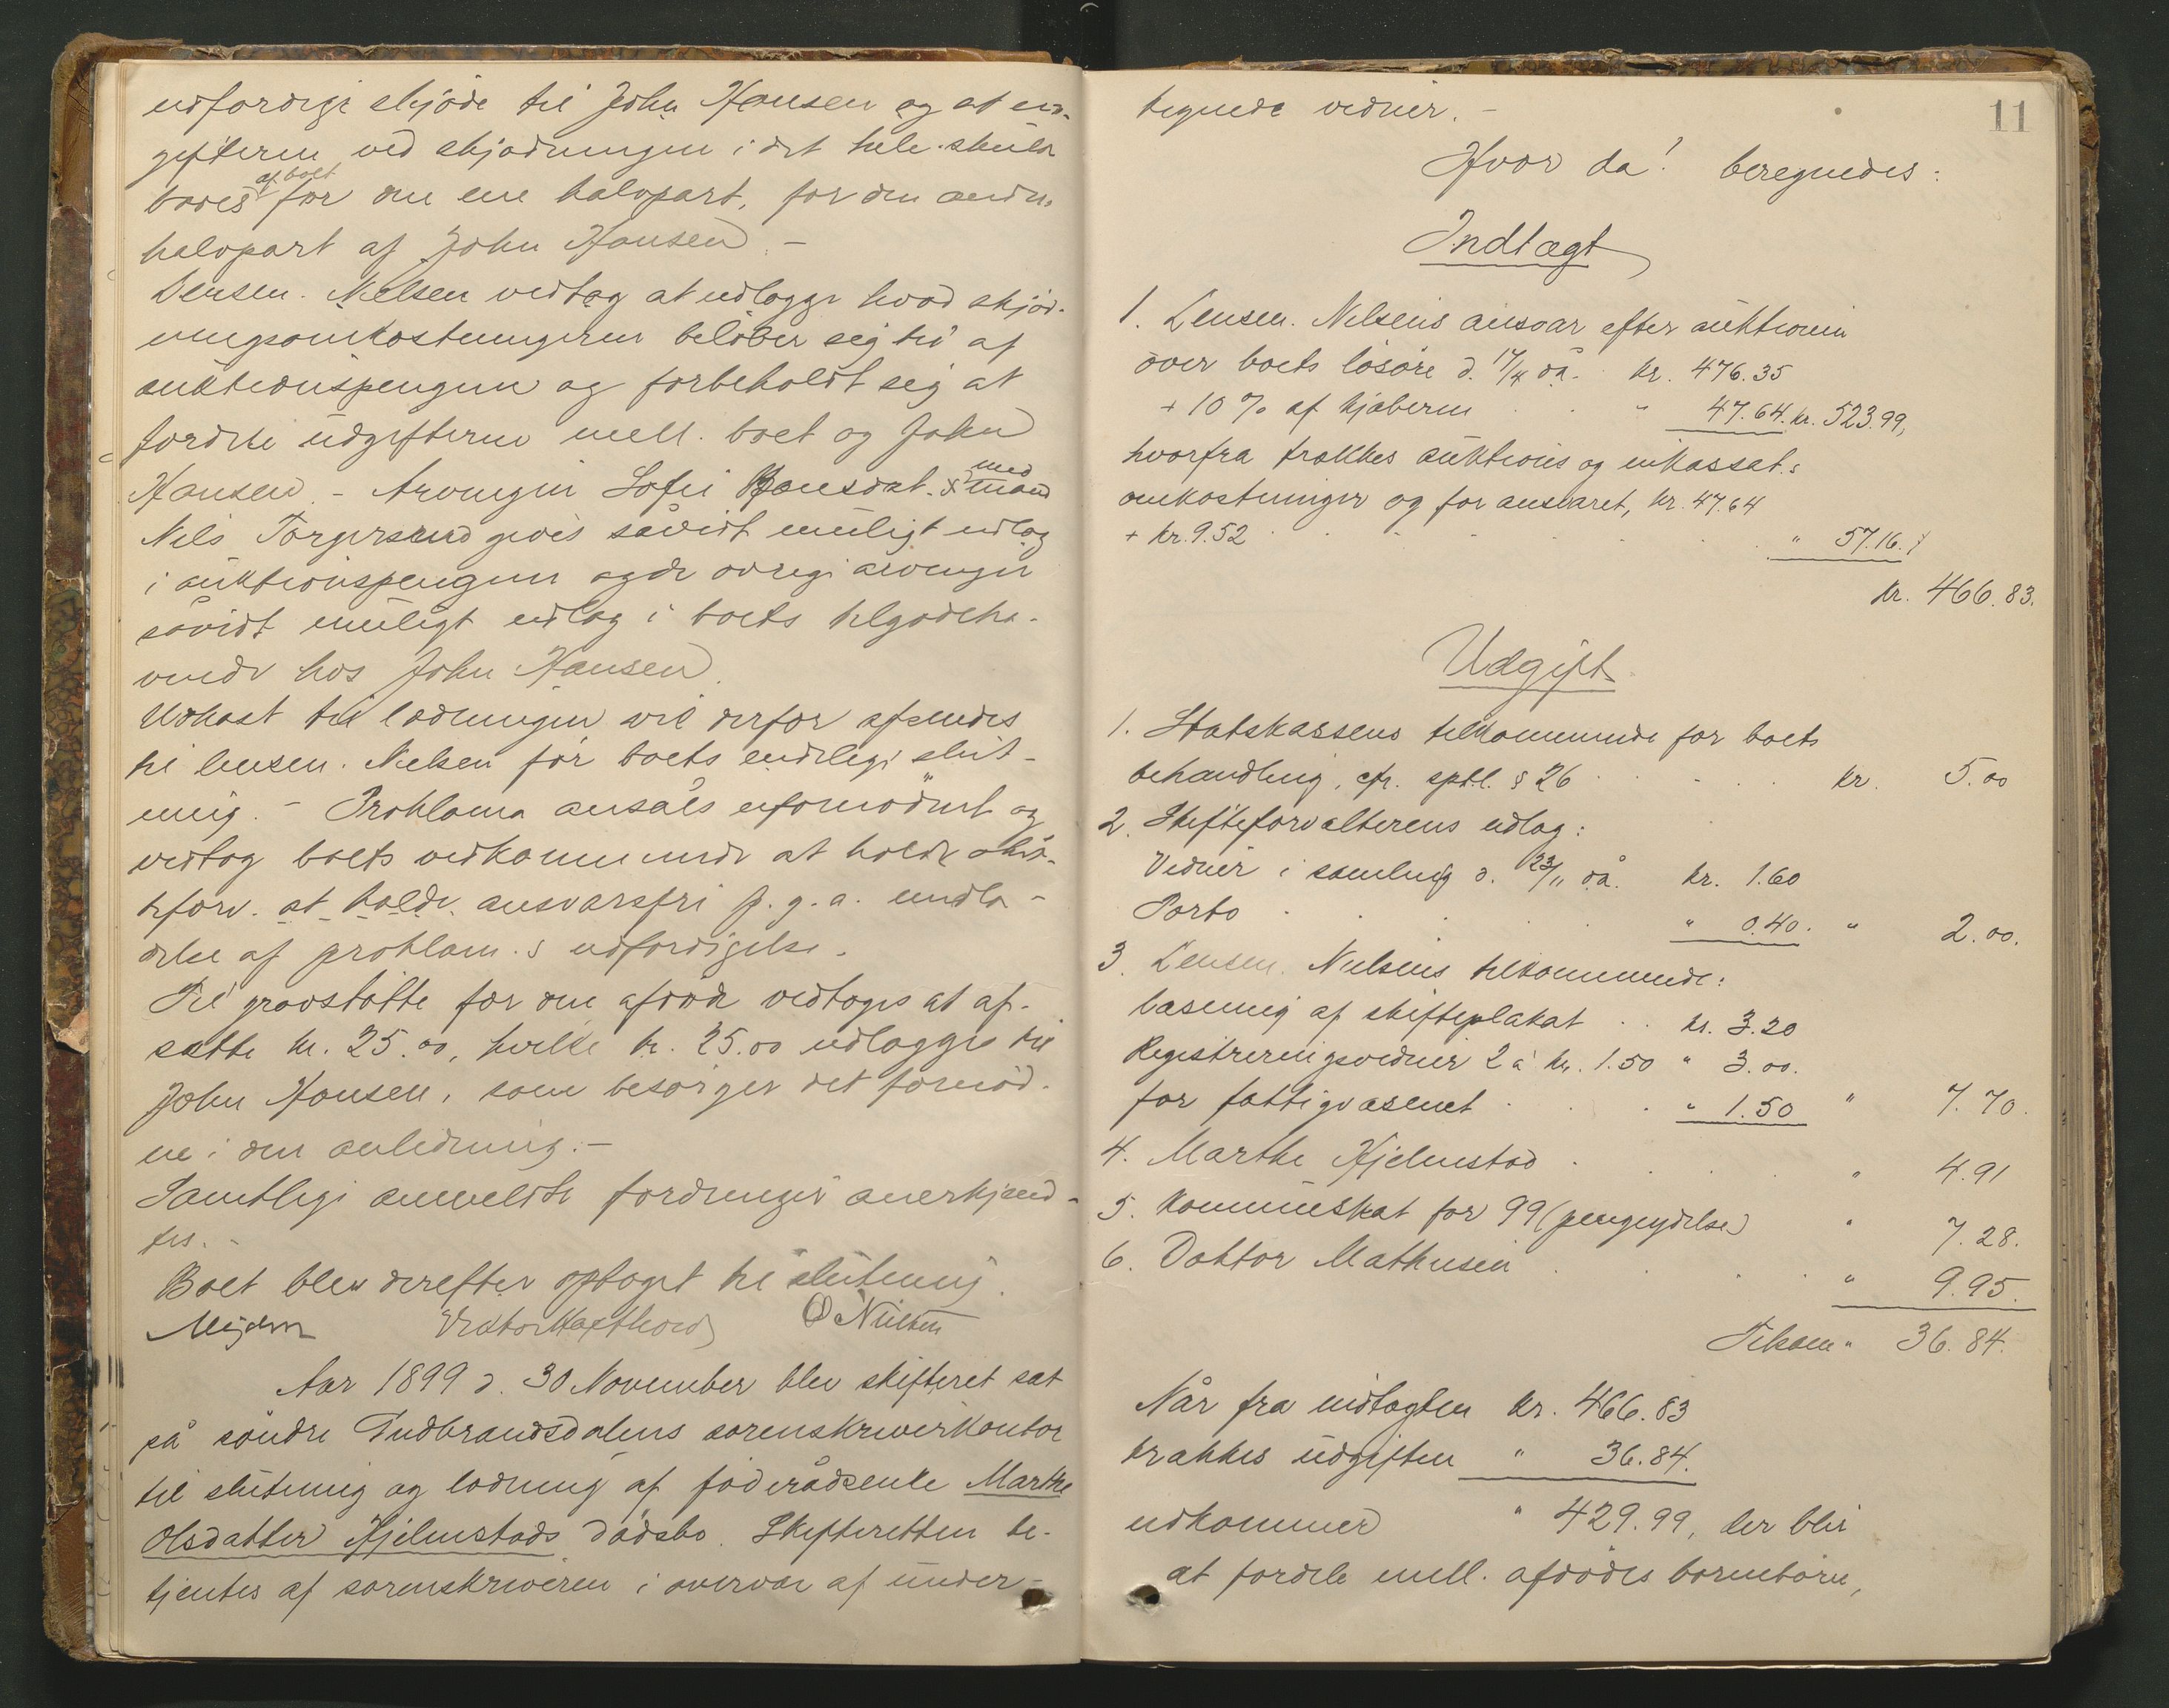 udfærdige skjøde til John Hansen og at ud-
gifterne ved skjødningen i det hele skulde
bæres af boet for den ene halvpart, for den andre
halvpart af John Hansen. -
Lensm. Nielsen vedtog at udlægge hvad skjød-
ningsomkostningerne beløber sig til af
auktionspengene og forbeholdt sig at
fordele udgifterne mell. boet og John
Hansen. - Arvingen Sofie Hansdat. med mand
Nils Torgersrud gives såvidt muligt udlæg
i auktionspengene og de øvrige arvinger
såvidt muligt udlæg i boets tilgodeha-
vende hos John Hansen.
Udkast til lodningen vil derfor afsendes
til lensm. Nielsen før boets endelige slut-
ning. - Proklama ansåes ufornødent og
vedtog boets vedkommende at holde skif-
teforv. at holde ansvarsfri p. g. a. undla-
delse af proklam.s udfærdigelse.
Til gravstøtte for den afdøde vedtoges at af-
sætte kr. 25.00, hvilke kr. 25.00 udlægges til
John Hansen, som besørger det fornød-
ne i den anledning. -
Samtlige anmeldte fordringer anerkjend-
tes. -
Boet blev derefter optaget til slutning.
Mejdell Viktor Hafthord O Nielsen
Aar 1899 d. 30 November blev skifteret sat
på søndre Gudbrandsdalens sorenskriverkontor
til slutning og lodning af føderådsenke Marthe
Olsdatter Hjelmstads dødsbo. Skifteretten be-
tjentes af sorenskriveren i overvær af under-
11
tegnede vidner. -
Hvor da! beregnedes:
Indtægt
1. Lensm. Nilsens ansvar efter auktionen
over boets løsøre d. 17/4 då. kr. 476.35
+ 10 % af kjøberne " 47.64. kr. 523.99,
hvorfra trækkes auktions og inkassat.s
omkostninger og for ansvaret, kr. 47.64
+ kr. 9.52 " 57.16.
kr. 466.83.
Udgift
1. Statskassens tilkommende for boets
behandling, cfr. sptl. § 26 kr. 5.00
2. Skifteforvalterens udlæg:
Vidner i samling d. 23/11 då. kr. 1.60
Porto " 0.40. " 2.00.
3. Lensm. Nielsens tilkommende:
læsning af skifteplakat kr. 3.20
Registreringsvidner 2 à kr. 1.50 " 3.00.
for fattigvæsenet " 1.50 " 7.70.
4. Marthe Hjelmstad " 4.91
5. Kommuneskat for 99 (pengeydelse) " 7.28.
6. Doktor Mathesen " 9.95.
Tilsam " 36.84.
Når fra indtægten kr. 466.83
trækkes udgiften " 36.84.
udkommer " 429.99, der blir
at fordele mell. afdødes børnebørn,